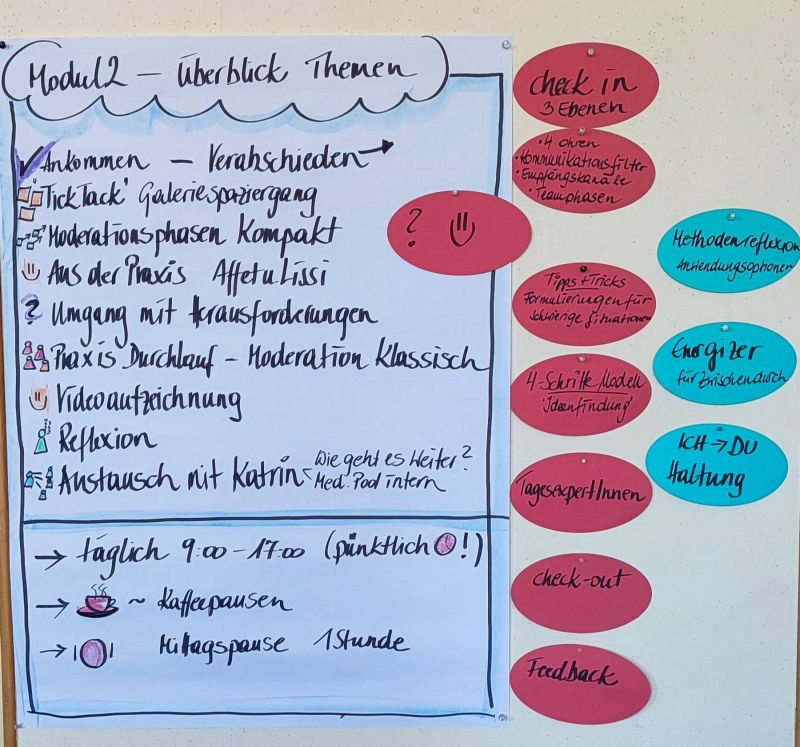 Modul 2 – Überblick Themen
Ankommen – Verabschieden →
TickTack' Galeriespaziergang
Moderationsphasen Kompakt
Aus der Praxis Affetu Lissi
? Umgang mit Herausforderungen
Praxis Durchlauf – Moderation Klassisch
Videoaufzeichnung
Reflexion
Austausch mit Katrin < Wie geht es Weiter?
Med. Pool intern
→ täglich 9:00 – 17:00 (pünktlich !)
→ ~ Kaffeepausen
→ Mittagspause 1 Stunde
?
Check in
3 Ebenen
• 4 Ohren
• Kommunikationsfilter
• Empfangskanäle
• Teamphasen
Tipps + Tricks
Formulierungen für
schwierige Situationen
4-Schritte Modell
'Ideenfindung'
TagesexpertInnen
Check-out
Feedback
Methodenreflexion
Anwendungsoptionen
Energizer
für Zwischendurch
ICH → DU
Haltung